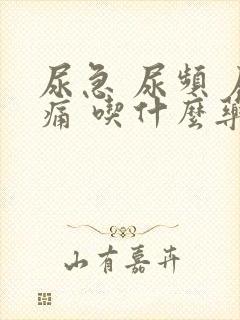 尿急 尿頻 尿
痛 喫什麼藥
山有嘉卉